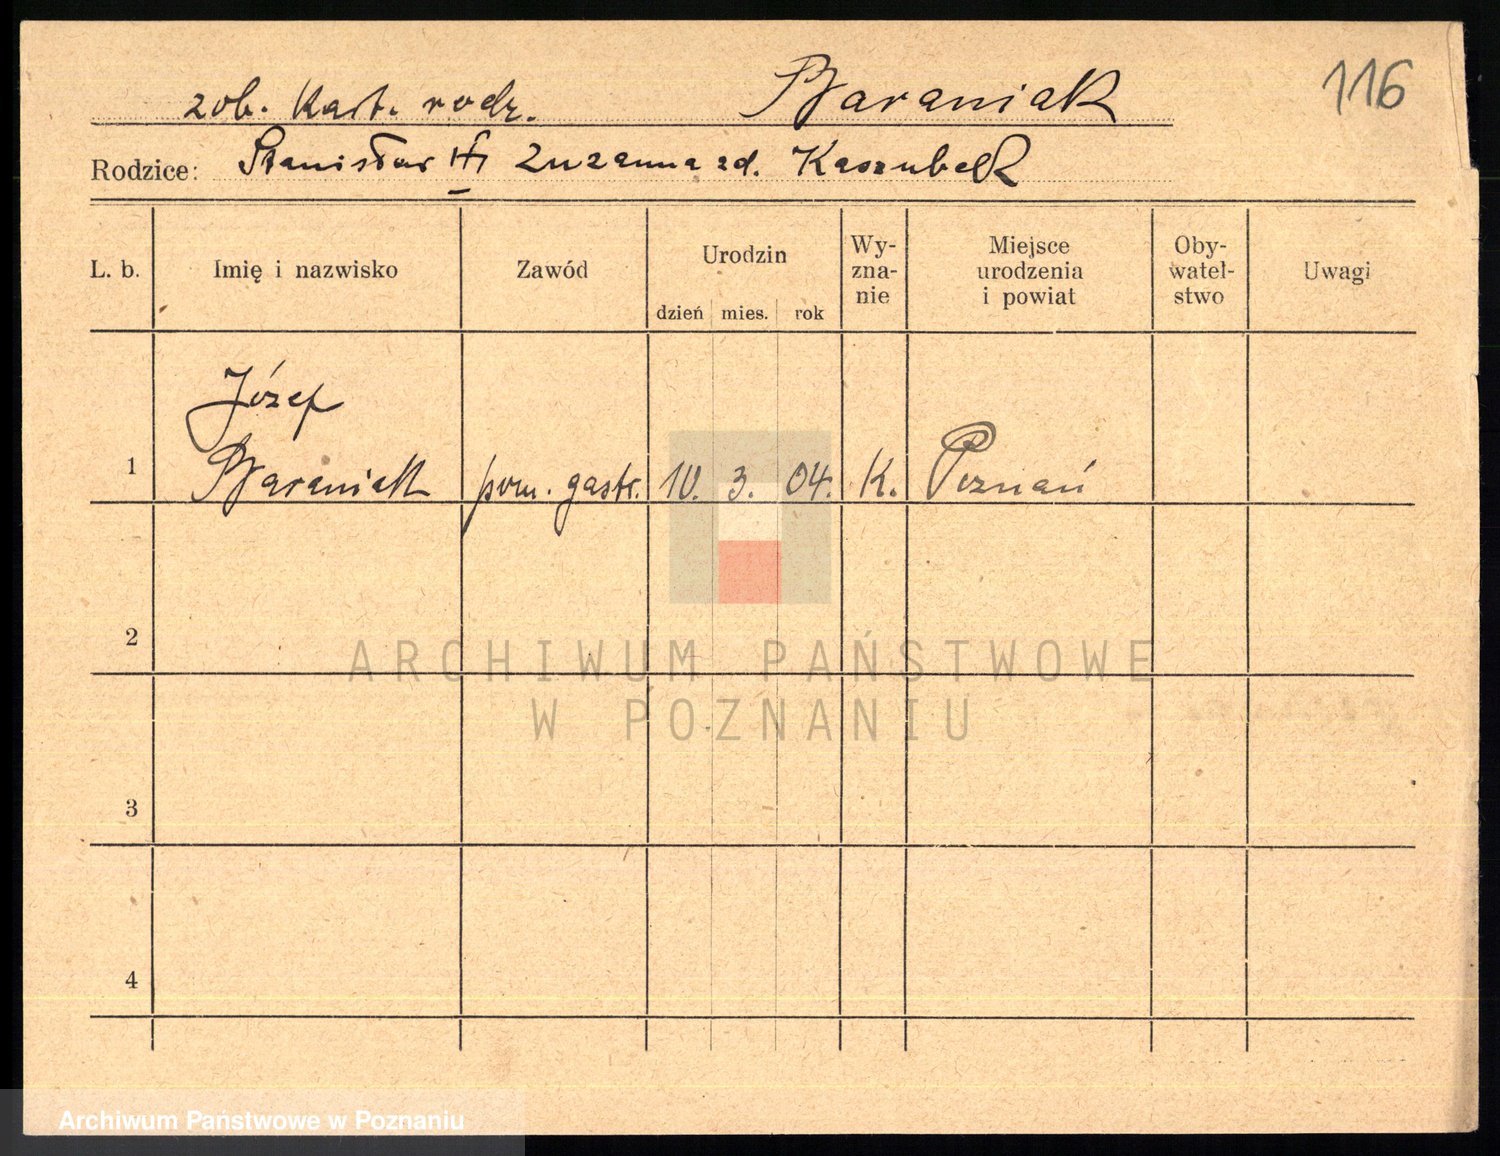 116
zob. Kart. rodz. Baraniak
Rodzice: Stanisław i Zuzanna zd. Kaszubek
L. b.
Imię i nazwisko
Zawód
Urodzin
dzień mies. rok
Wy-
zna-
nie
Miejsce
urodzenia
i powiat
Oby-
watel-
stwo
Uwagi
Józef
1 Baraniak pom. gastr. 10. 3. 04. K. Poznań
2
3
4
ARCHIWUM PAŃSTWOWE
W POZNANIU
Archiwum Państwowe w Poznaniu